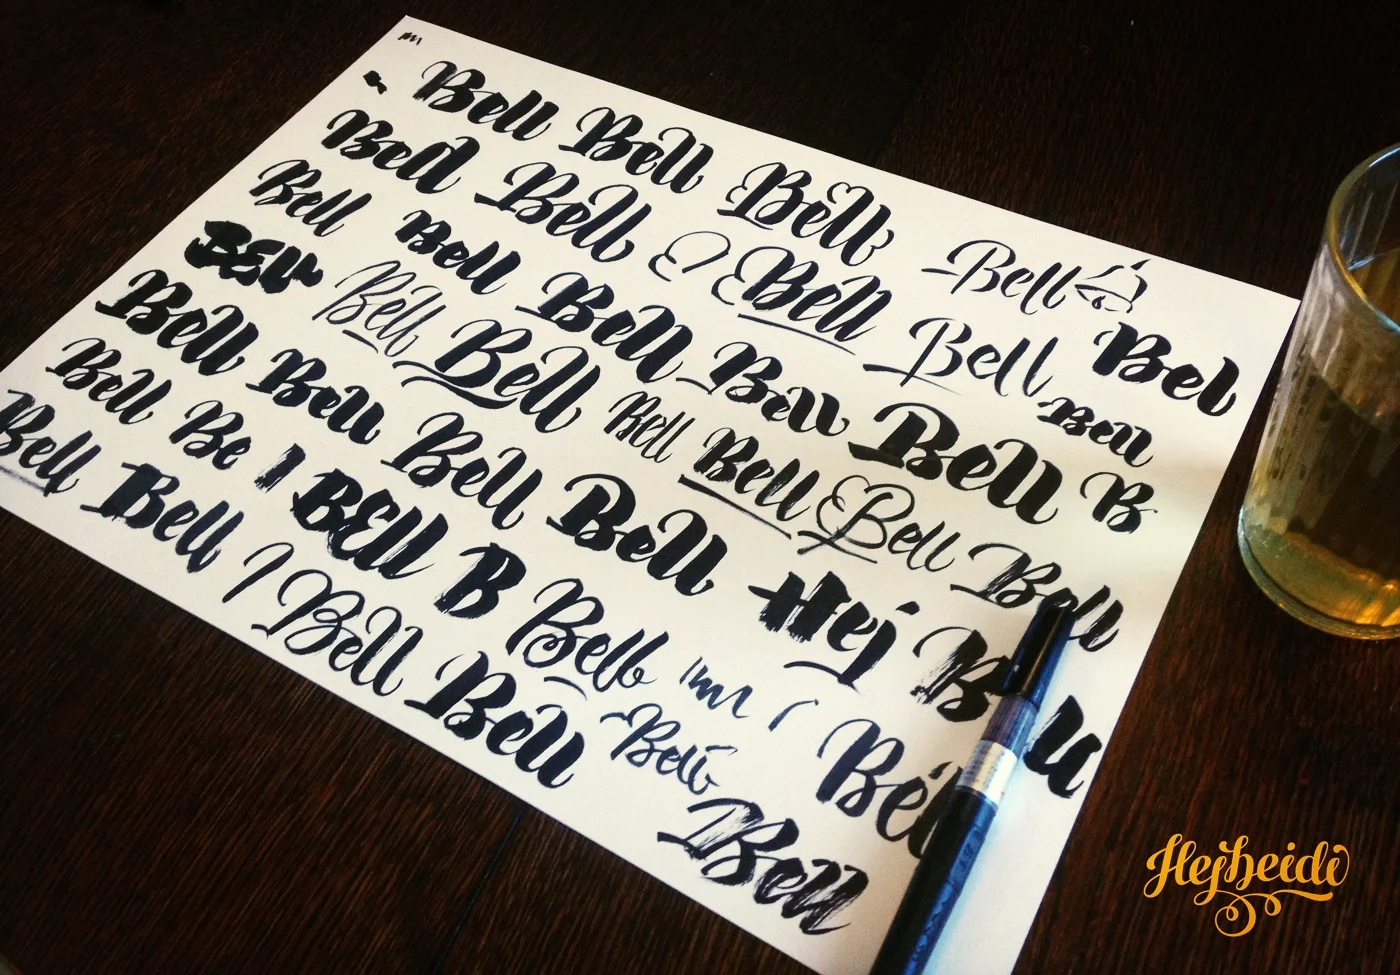 Bell Bell Bell Bell Bel
Bell Bell Bell Bell Bell
Bell Bell Bell Bell Bell B
BELL Bell Bell Bell Bell Bell Bell
Bell Bell Bell Bell Hej Bell
Bell Be BEll B Bell Bell
Bell Bell Bell Bell Bell Bell
Hejheidi